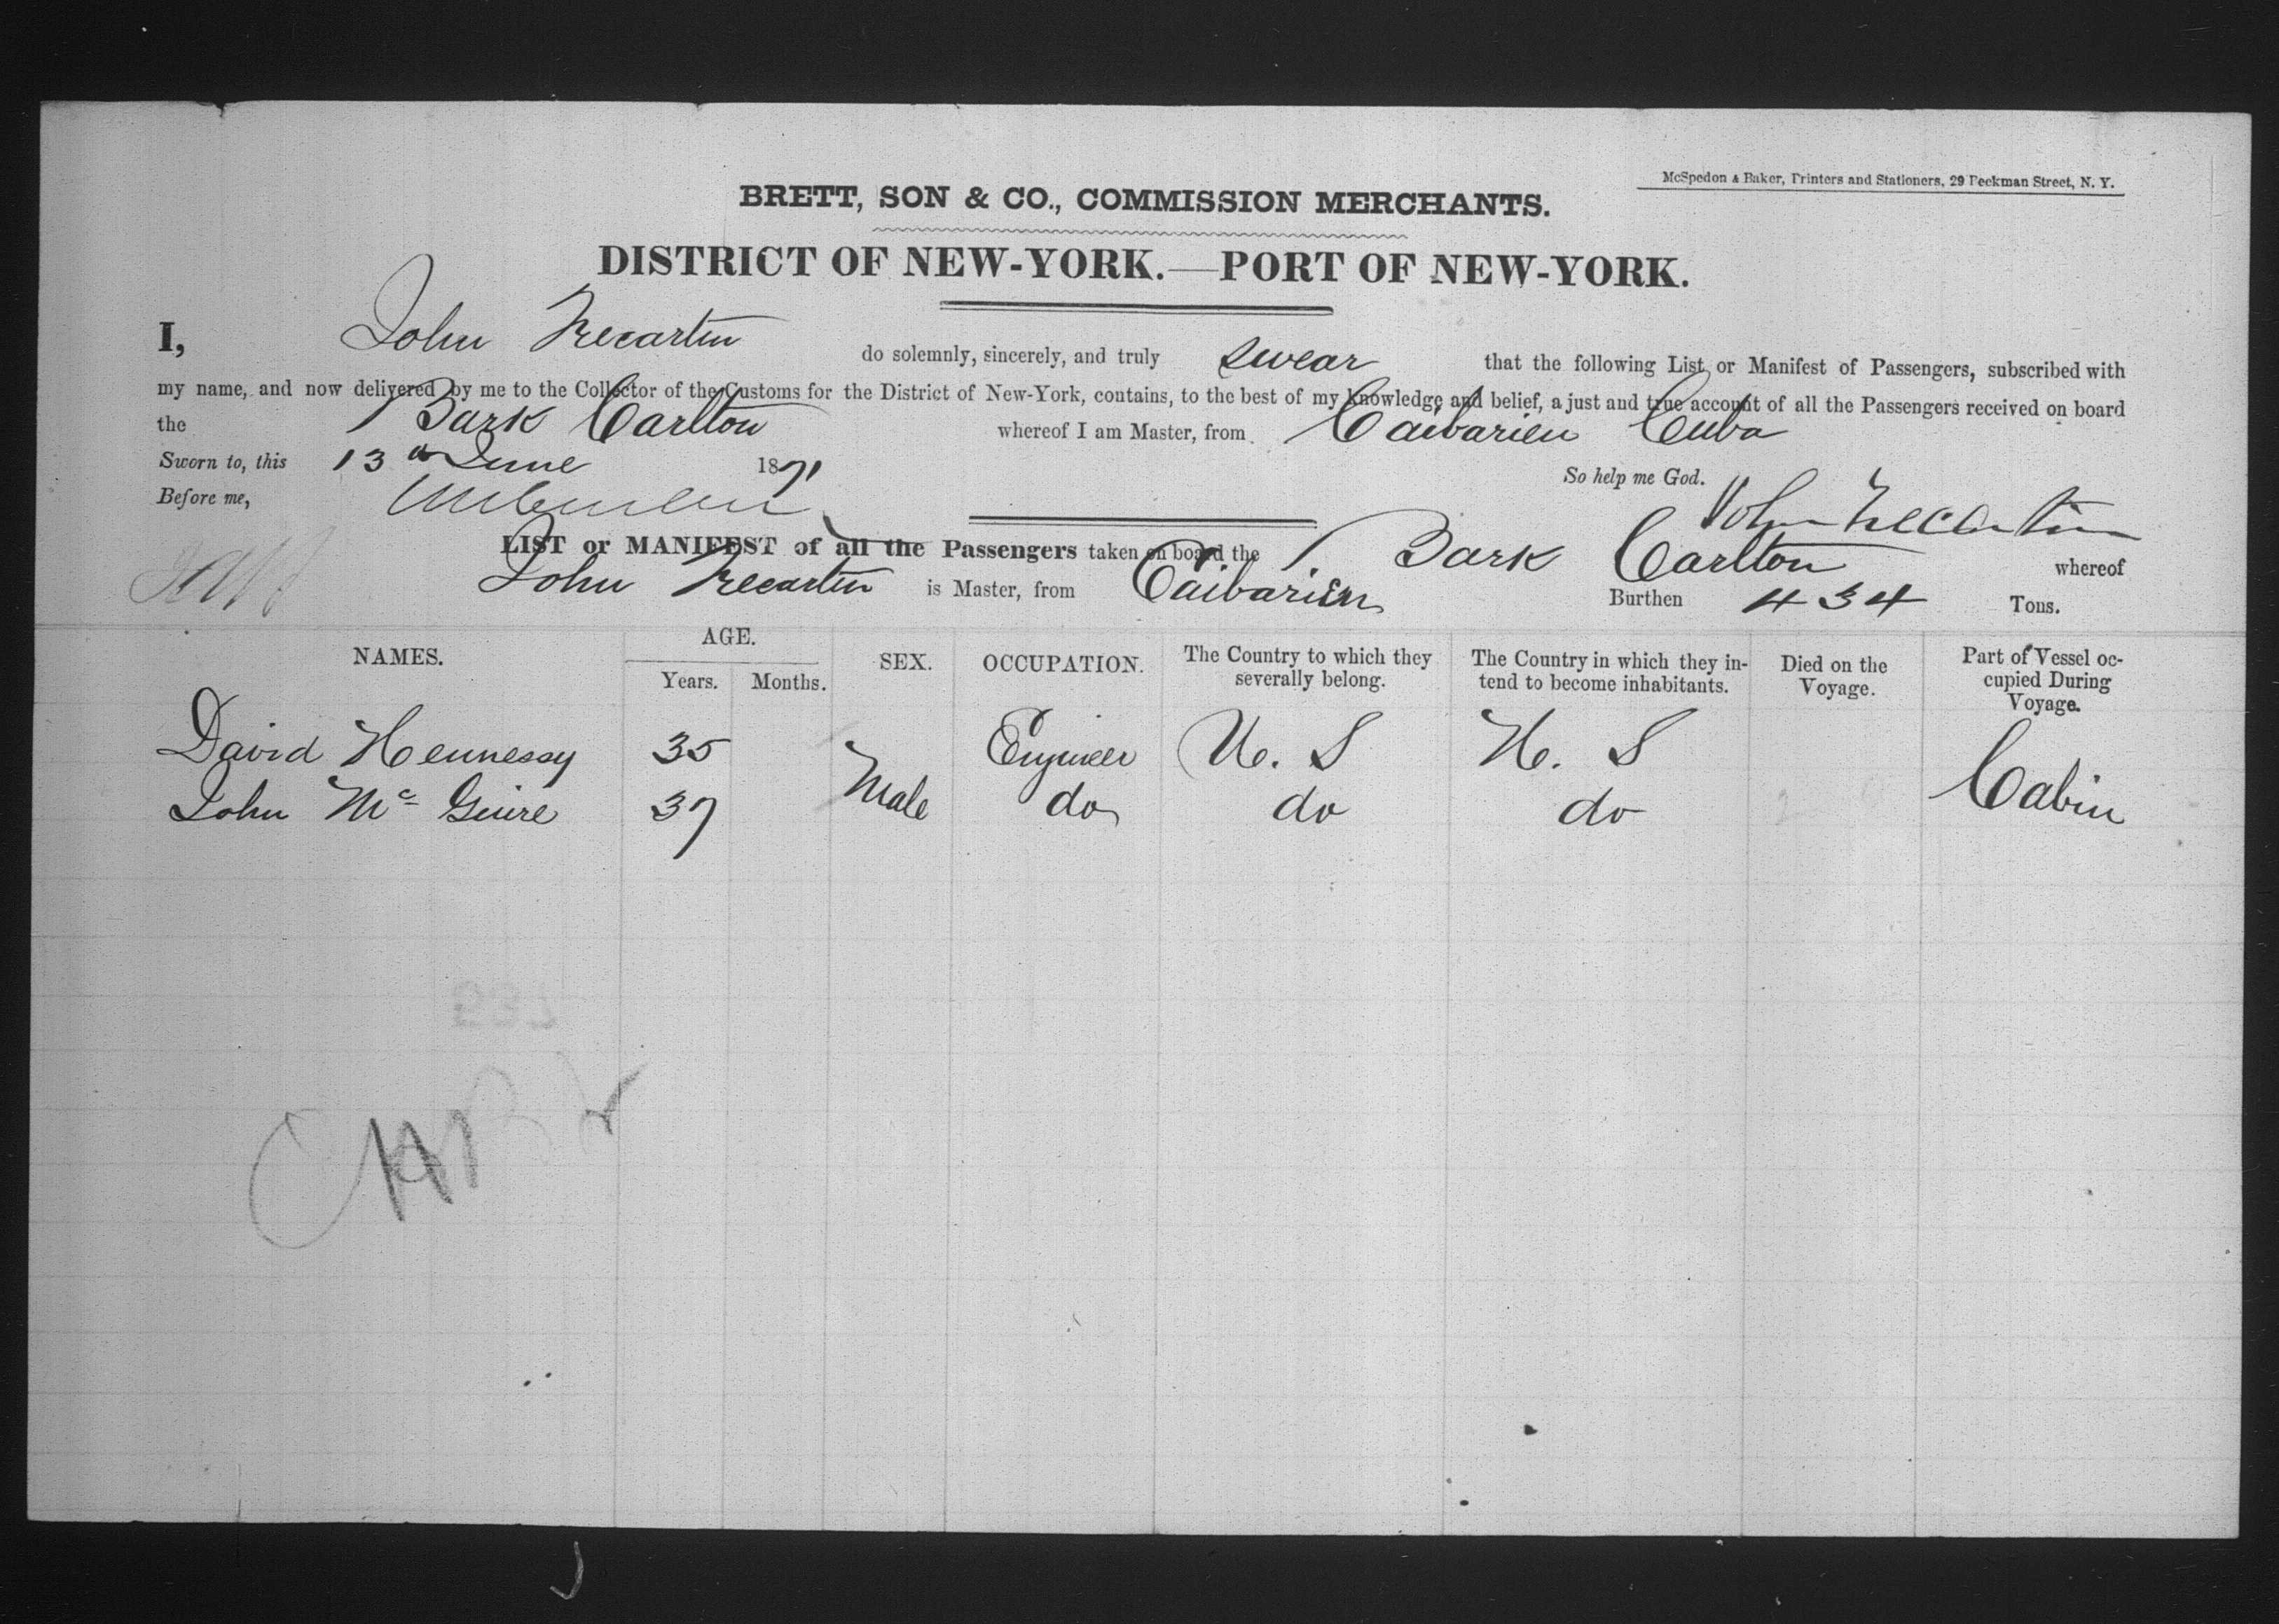 McSpedon & Baker, Printers and Stationers, 29 Beekman Street, N. Y.
BRETT, SON & CO., COMMISSION MERCHANTS.
DISTRICT OF NEW-YORK.—PORT OF NEW-YORK.
I, John Trecartin do solemnly, sincerely, and truly swear that the following List or Manifest of Passengers, subscribed with
my name, and now delivered by me to the Collector of the Customs for the District of New-York, contains, to the best of my knowledge and belief, a just and true account of all the Passengers received on board
the Bark Carlton whereof I am Master, from Caibarien Cuba
Sworn to, this 13th June 1871 So help me God.
Before me, John Trecartin
LIST or MANIFEST of all the Passengers taken on board the Bark Carlton whereof
John Trecartin is Master, from Caibarien Burthen 434 Tons.
NAMES. AGE. Years. Months. SEX. OCCUPATION. The Country to which they severally belong. The Country in which they intend to become inhabitants. Died on the Voyage. Part of Vessel occupied During Voyage.
David Hennessy 35 Male Engineer U. S U. S Cabin
John Mc Guire 37 do do do